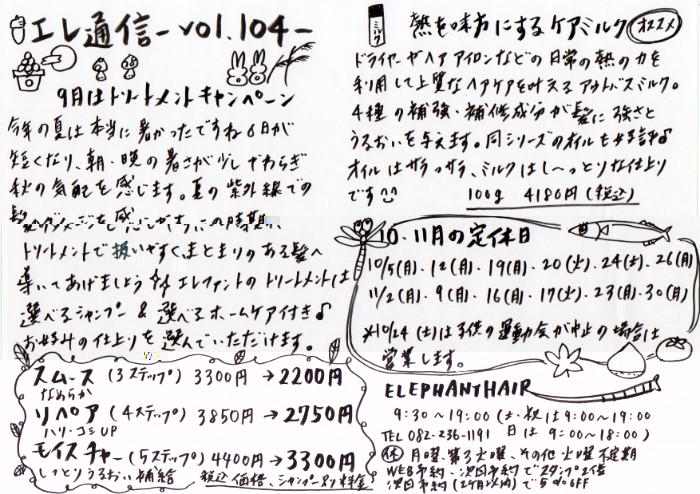 エレ通信-vol.104-
9月はトリートメントキャンペーン
今年の夏は本当に暑かったですね 日が
短くなり、朝・晩の暑さが少しやわらぎ
秋の気配を感じます。夏の紫外線での
髪のダメージを感じ この時期、
トリートメントで扱いやすく、まとまりのある髪へ
導いてあげましょう エレファントのトリートメントは
選べるシャンプー & 選べるホームケア付き♪
お好みの仕上りを選んでいただけます。
スムース (3ステップ) 3300円 → 2200円
なめらか
リペア (4ステップ) 3850円 → 2750円
ハリ・コシUP
モイスチャー (5ステップ) 4400円 → 3300円
しっとりうるおい補給 税込価格、シャンプー別料金
ミルク
熱を味方にするケアミルク オススメ
ドライヤーやヘアアイロンなどの日常の熱の力を
利用して上質なヘアケアを叶えるアウトバスミルク。
4種の補強・補修成分が髪に強さと
うるおいを与えます。同シリーズのオイルも好評♪
オイルはサラっサラ、ミルクはし〜っとりな仕上り
です
100g 4180円(税込)
10、11月の定休日
10/5(月)、12(月)、19(月)、20(火)、24(土)、26(月)
11/2(月)、9(月)、16(月)、17(火)、23(月)、30(月)
※10/24(土)は子供の運動会が中止の場合は
営業します。
ELEPHANT HAIR
9:30〜19:00 (土・祝は9:00〜19:00
TEL 082-236-1191 日は 9:00〜18:00)
休 月曜、第3火曜、その他火曜不定期
WEB予約・次回予約でスタンプ2倍
次回予約(2ヶ月以内)で5%OFF